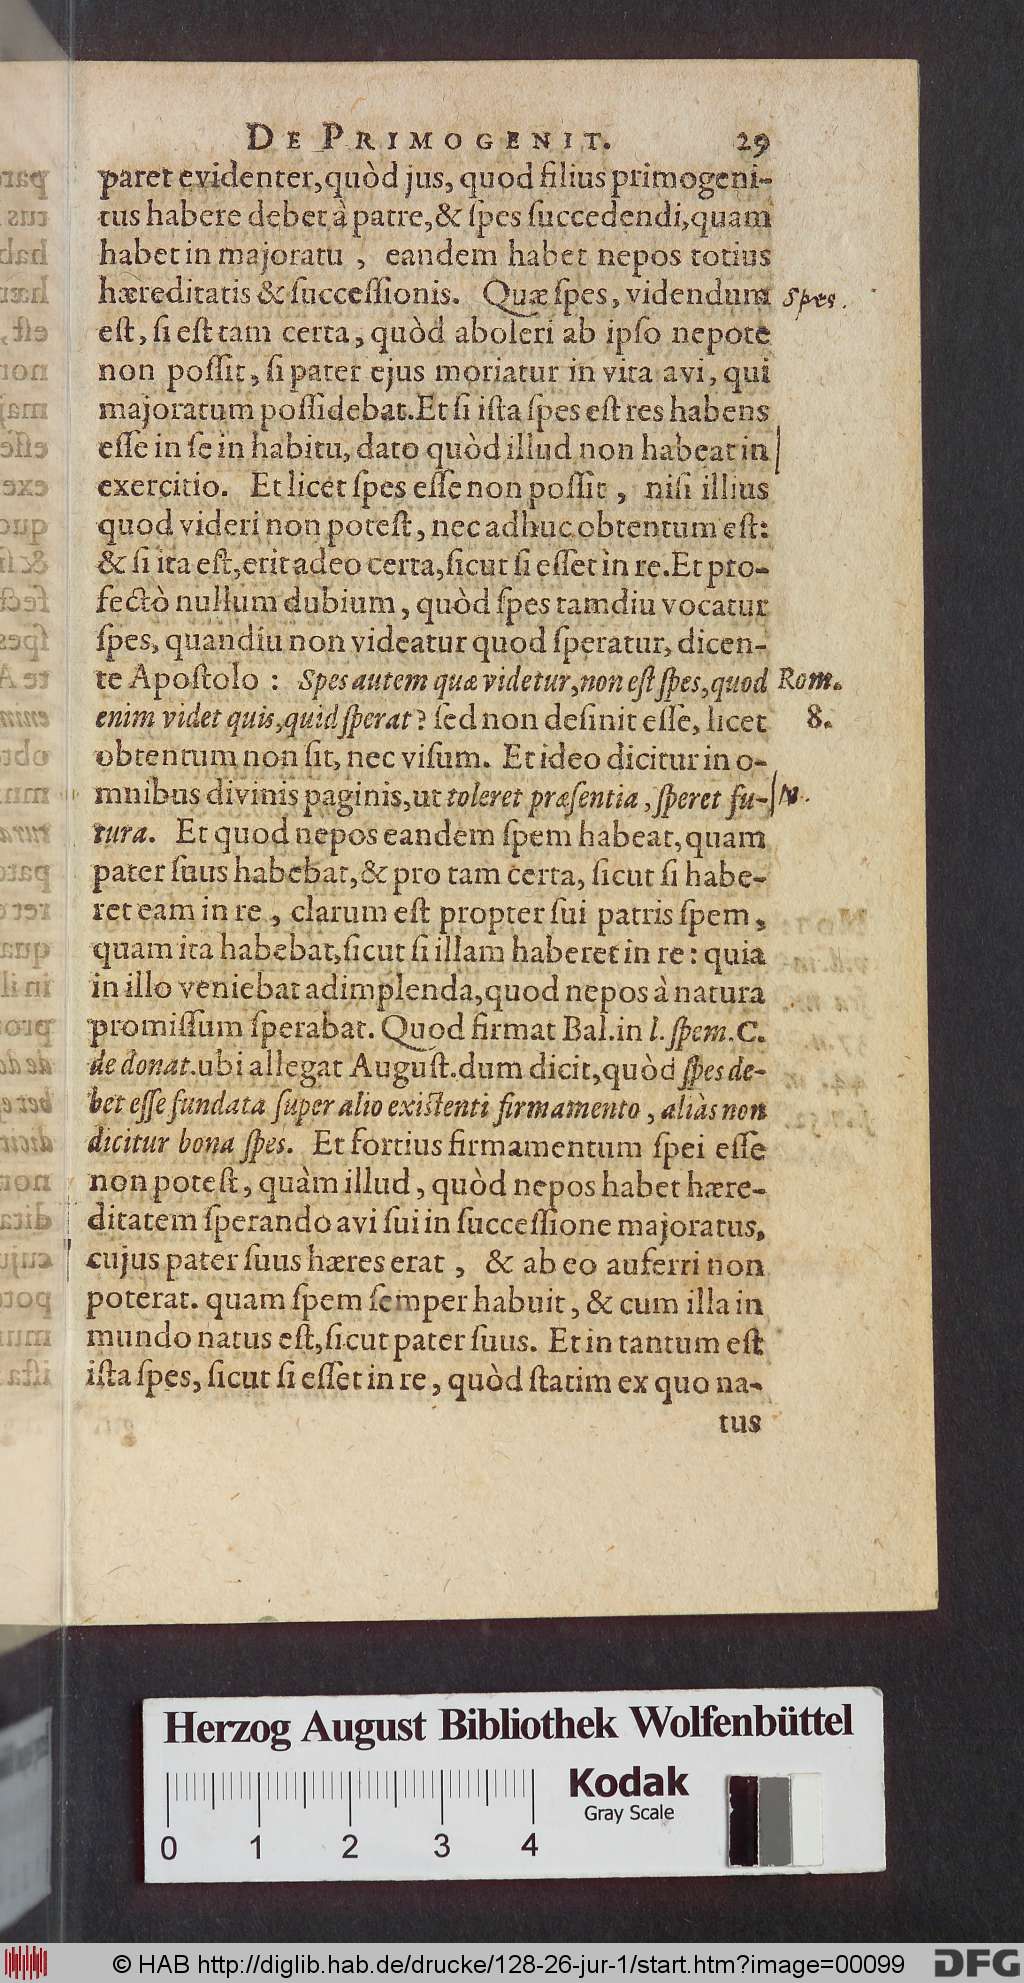 DE PRIMOGENIT. 29
paret evidenter, quòd jus, quod filius primogeni-
tus habere debet à patre, & ſpes ſuccedendi, quam
habet in majoratu , eandem habet nepos totius
hæreditatis & ſucceſſionis. Quæ ſpes, videndum Spes.
eſt, ſi eſt tam certa, quòd aboleri ab ipſo nepote
non poſſit, ſi pater ejus moriatur in vita avi, qui
majoratum poſſidebat. Et ſi iſta ſpes eſt res habens
eſſe in ſe in habitu, dato quòd illud non habeat in
exercitio. Et licet ſpes eſſe non poſſit , niſi illius
quod videri non poteſt, nec adhuc obtentum eſt:
& ſi ita eſt, erit adeo certa, ſicut ſi eſſet in re. Et pro-
fectò nullum dubium, quòd ſpes tamdiu vocatur
ſpes, quandiu non videatur quod ſperatur, dicen-
te Apoſtolo : Spes autem quæ videtur, non eſt ſpes, quod Rom.
enim videt quis, quid ſperat? ſed non deſinit eſſe, licet 8.
obtentum non ſit, nec viſum. Et ideo dicitur in o-
mnibus divinis paginis, ut toleret præſentia, ſperet fu-
tura. Et quod nepos eandem ſpem habeat, quam
pater ſuus habebat, & pro tam certa, ſicut ſi habe-
ret eam in re, clarum eſt propter ſui patris ſpem,
quam ita habebat, ſicut ſi illam haberet in re: quia
in illo veniebat adimplenda, quod nepos à natura
promiſſum ſperabat. Quod firmat Bal. in l. ſpem. C.
de donat. ubi allegat Auguſt. dum dicit, quòd ſpes de-
bet eſſe fundata ſuper alio existenti firmamento, aliàs non
dicitur bona ſpes. Et fortius firmamentum ſpei eſſe
non poteſt, quàm illud, quòd nepos habet hære-
ditatem ſperando avi ſui in ſucceſſione majoratus,
cujus pater ſuus hæres erat , & ab eo auferri non
poterat. quam ſpem ſemper habuit, & cum illa in
mundo natus eſt, ſicut pater ſuus. Et in tantum eſt
iſta ſpes, ſicut ſi eſſet in re, quòd ſtatim ex quo na-
tus
Herzog August Bibliothek Wolfenbüttel
Kodak
Gray Scale
0 1 2 3 4
© HAB http://diglib.hab.de/drucke/128-26-jur-1/start.htm?image=00099
DFG